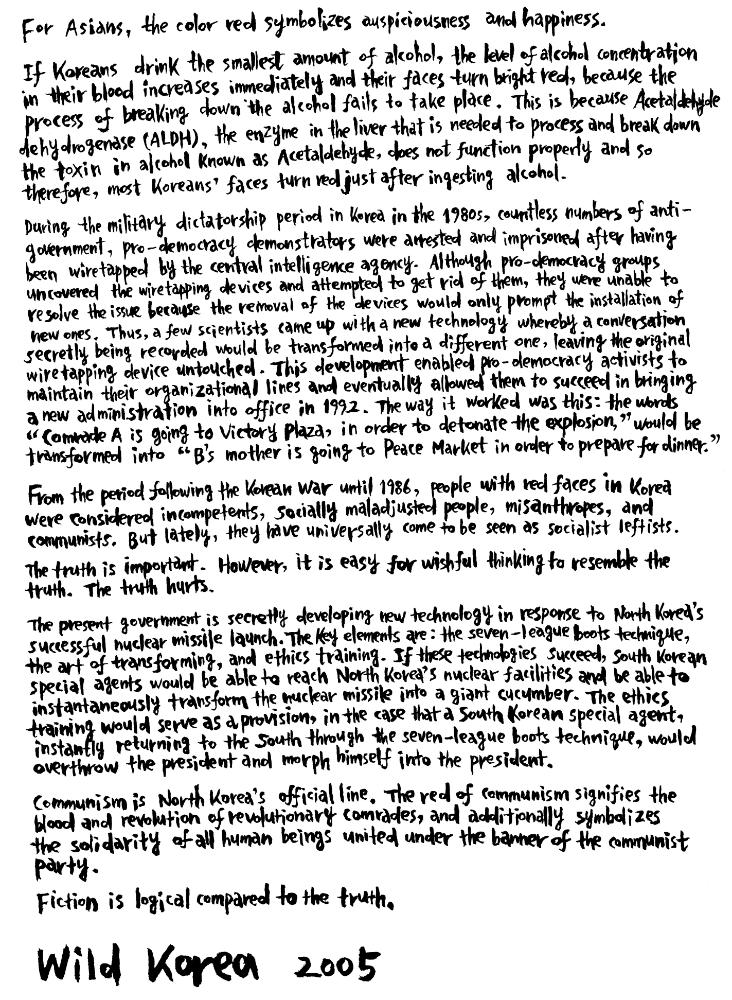 For Asians, the color red symbolizes auspiciousness and happiness.
If Koreans drink the smallest amount of alcohol, the level of alcohol concentration
in their blood increases immediately and their faces turn bright red, because the
process of breaking down the alcohol fails to take place. This is because Acetaldehyde
dehydrogenase (ALDH), the enzyme in the liver that is needed to process and break down
the toxin in alcohol known as Acetaldehyde, does not function properly and so
therefore, most Koreans' faces turn red just after ingesting alcohol.
During the military dictatorship period in Korea in the 1980s, countless numbers of anti-
government, pro-democracy demonstrators were arrested and imprisoned after having
been wiretapped by the central intelligence agency. Although pro-democracy groups
uncovered the wiretapping devices and attempted to get rid of them, they were unable to
resolve the issue because the removal of the devices would only prompt the installation of
new ones. Thus, a few scientists came up with a new technology whereby a conversation
secretly being recorded would be transformed into a different one, leaving the original
wiretapping device untouched. This development enabled pro-democracy activists to
maintain their organizational lines and eventually allowed them to succeed in bringing
a new administration into office in 1992. The way it worked was this: the words
"Comrade A is going to Victory Plaza, in order to detonate the explosion," would be
transformed into "B's mother is going to Peace Market in order to prepare for dinner."
From the period following the Korean War until 1986, people with red faces in Korea
were considered incompetents, socially maladjusted people, misanthropes, and
communists. But lately, they have universally come to be seen as socialist leftists.
The truth is important. However, it is easy for wishful thinking to resemble the
truth. The truth hurts.
The present government is secretly developing new technology in response to North Korea's
successful nuclear missile launch. The key elements are: the seven-league boots technique,
the art of transforming, and ethics training. If these technologies succeed, South Korean
special agents would be able to reach North Korea's nuclear facilities and be able to
instantaneously transform the nuclear missile into a giant cucumber. The ethics
training would serve as a provision, in the case that a South Korean special agent,
instantly returning to the South through the seven-league boots technique, would
overthrow the president and morph himself into the president.
Communism is North Korea's official line. The red of communism signifies the
blood and revolution of revolutionary comrades, and additionally symbolizes
the solidarity of all human beings united under the banner of the communist
party.
Fiction is logical compared to the truth.
Wild Korea 2005